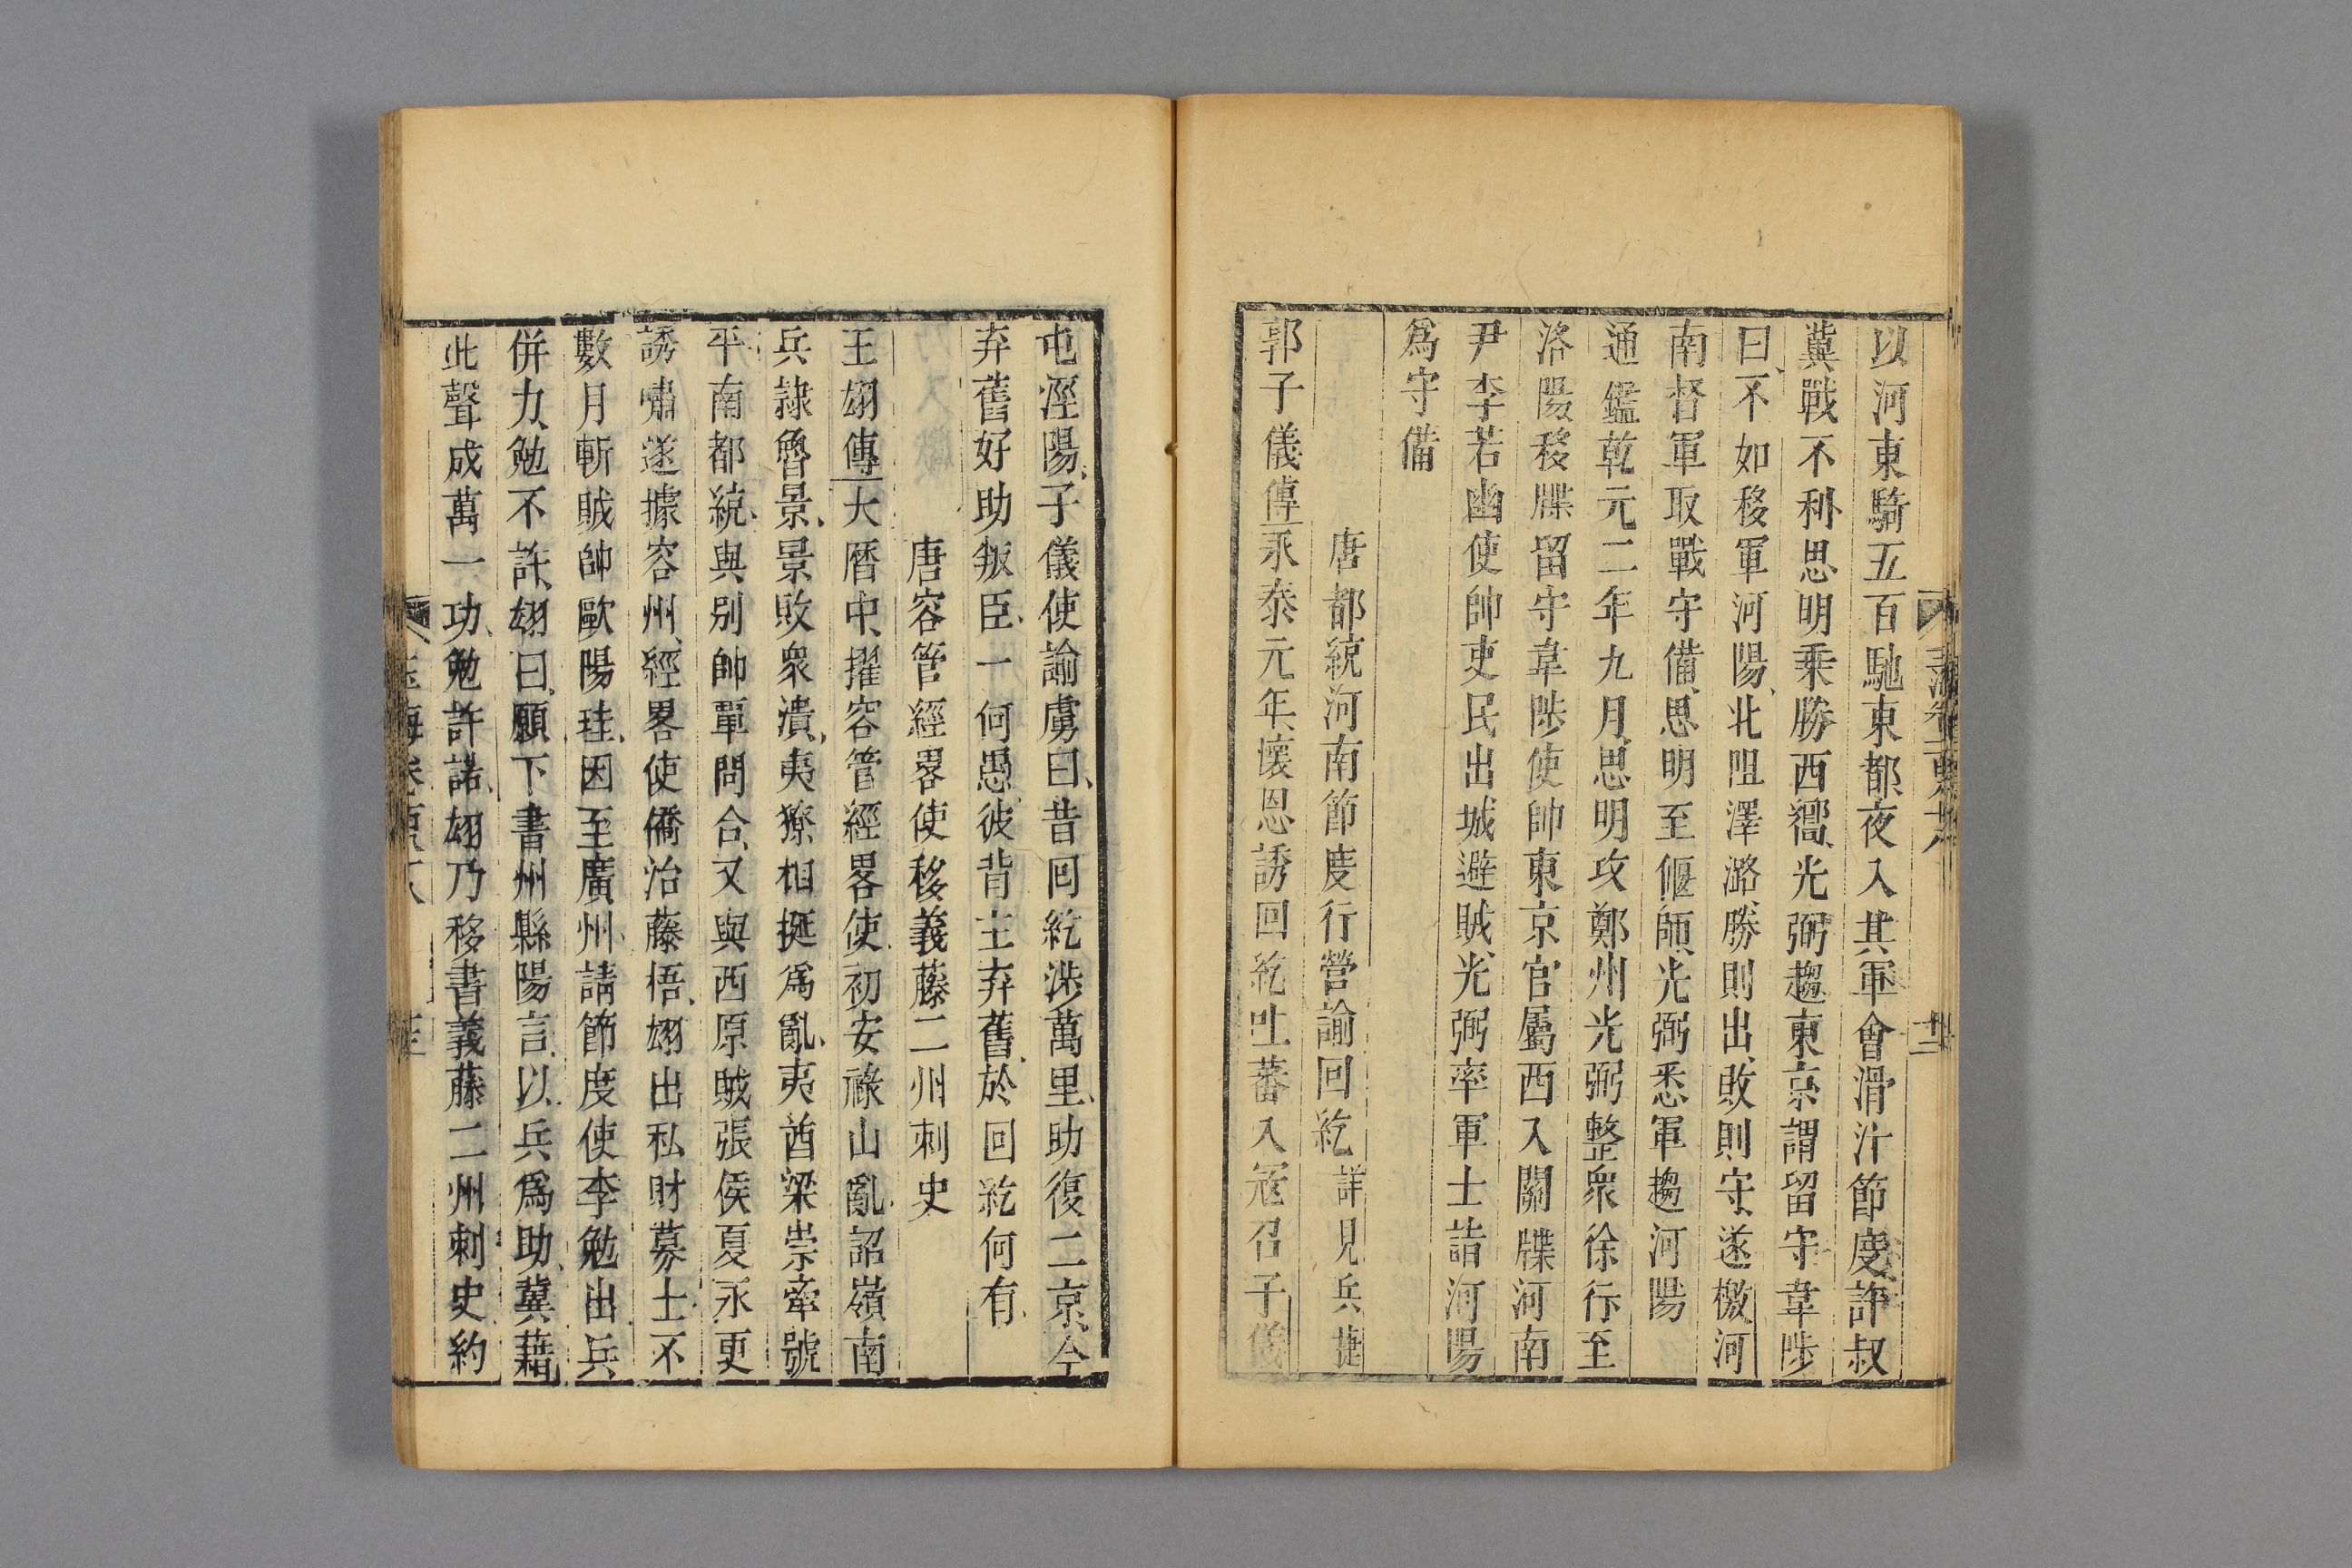 以河東騎五百馳東都夜入其軍會滑汴節度許叔
冀戰不利思明乘勝西嚮光弼趨東京謂留守韋陟
曰不如移軍河陽北阻澤潞勝則出敗則守遂檄河
南督軍取戰守備思明至偃師光弼悉軍趨河陽
通鑑乾元二年九月思明攻鄭州光弼整眾徐行至
洛陽移牒留守韋陟使帥東京官屬西入關牒河南
尹李若幽使帥吏民出城避賊光弼率軍士詣河陽
爲守備
唐都統河南節度行營諭回紇 詳見兵捷
郭子儀傳永泰元年懷恩誘回紇吐蕃入冦召子儀
屯涇陽子儀使諭虜曰昔回紇涉萬里助復二京今
弃舊好助叛臣一何愚彼背主弃舊於回紇何有
唐容管經畧使移義藤二州刺史
王翃傳大曆中擢容管經畧使初安祿山亂詔嶺南
兵隷魯景景敗衆潰夷獠相挻爲亂夷酋梁崇牽號
平南都統與別帥覃問合又與西原賊張侯夏永更
誘嘯遂據容州經畧使僑治藤梧翃出私財募士不
數月斬賊帥歐陽珪因至廣州請節度使李勉出兵
併力勉不許翃曰願下書州縣陽言以兵爲助冀藉
此聲成萬一功勉許諾翃乃移書義藤二州刺史約